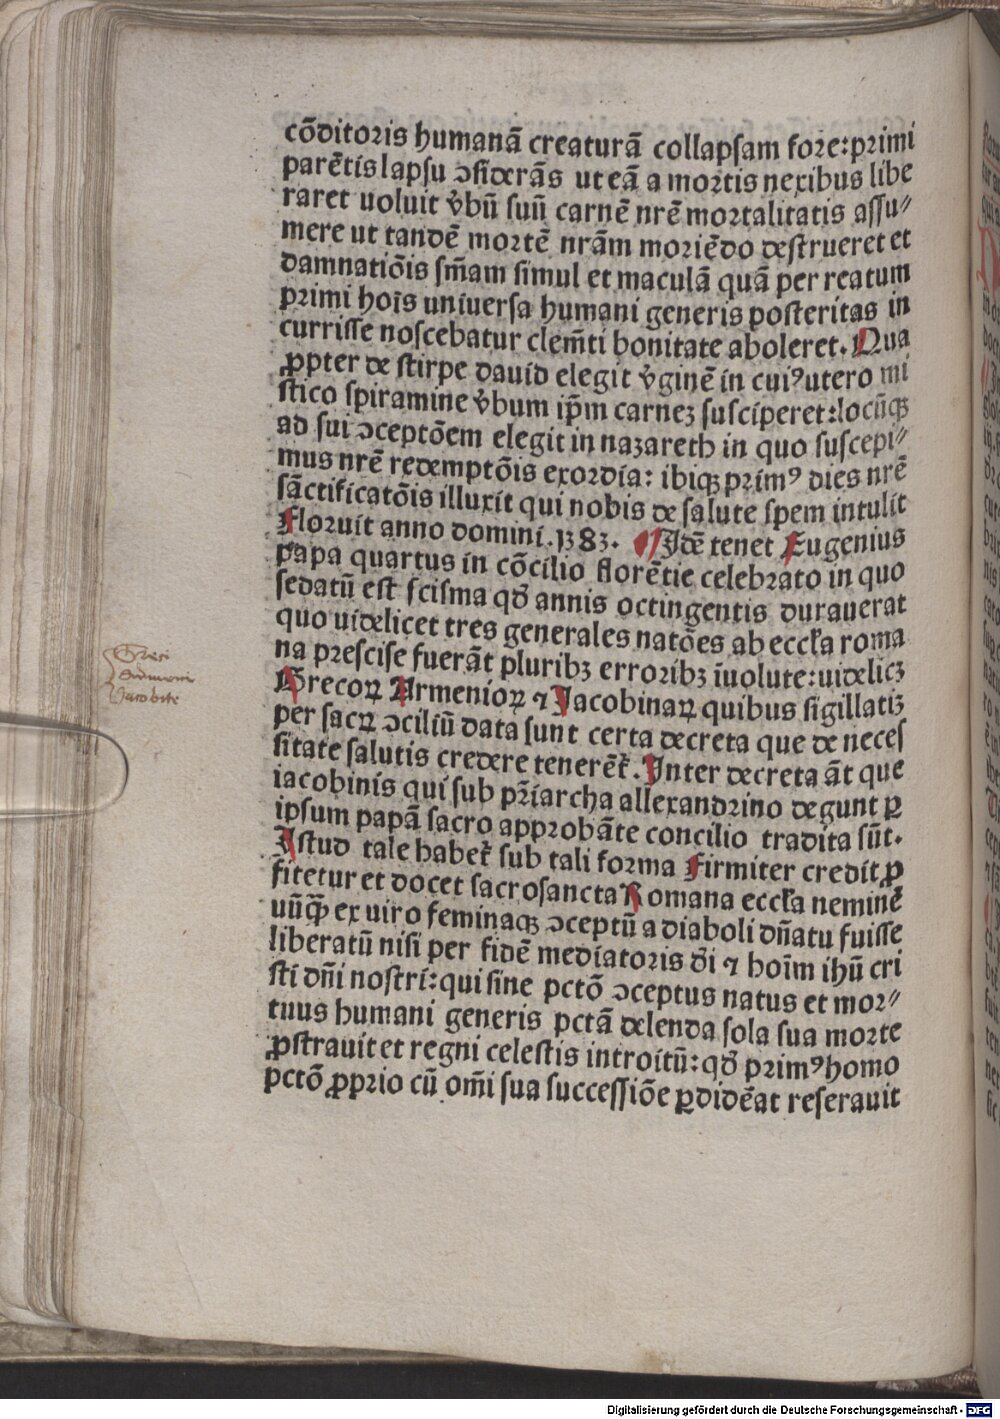 cōditoris humanā creaturā collapsam fore:primi
parētis lapsu ↄsiderās ut eā a mortis nexibus libe
raret uoluit v̄bū suū carnē nrē mortalitatis assu⸗
mere ut tandē mortē nrām moriēdo destrueret et
damnatiōis sm̄am simul et maculā quā per reatum
primi hoīs uniuersa humani generis posteritas in
currisse noscebatur clem̄ti bonitate aboleret. Qua
ꝓpter de stirpe dauid elegit v̄ginē in cuiꝰ utero mi
stico spiramine v̄bum ip̄m carneȝ susciperet:locūqȝ
ad sui ↄceptōem elegit in nazareth in quo suscepi⸗
mus nrē redemptōis exordia: ibiqȝ primꝰ dies nrē
sāctificatōis illuxit qui nobis de salute spem intulit
Floruit anno domini.1383. ¶ Idē tenet Eugenius
papa quartus in cōcilio florētie celebrato in quo
sedatū est scisma qđ annis octingentis durauerat
quo uidelicet tres generales natōes ab eccłia roma
na prescise fuerāt pluribȝ erroribȝ īuolute:uidelicȝ
Grecoꝝ Armenioꝝ ⁊ Jacobinaꝝ quibus sigillatiȝ
per sacꝝ ↄciliū data sunt certa decreta que de neces
sitate salutis credere tenerēt̄. Inter decreta āt que
iacobinis qui sub pr̄iarcha allexandrino degunt ꝑ
ipsum papā sacro approbāte concilio tradita sūt.
Istud tale habet̄ sub tali forma Firmiter credit ꝓ
fitetur et docet sacrosancta Romana eccłia neminē
uūqȝ̄ ex uiro feminaqȝ ↄceptū a diaboli dn̄atu fuisse
liberatū nisi per fidē mediatoris d̄i ⁊ hoīm ihū cri
sti dn̄i nostri:qui sine pctō ↄceptus natus et mor⸗
tuus humani generis pctā delenda sola sua morte
ꝓstrauit et regni celestis introitū:qđ primꝰ homo
pctō ꝓprio cū om̄i sua successiōe ꝑdidēat reserauit
Greci
Jacobite
Digitalisierung gefördert durch die Deutsche Forschungsgemeinschaft - DFG